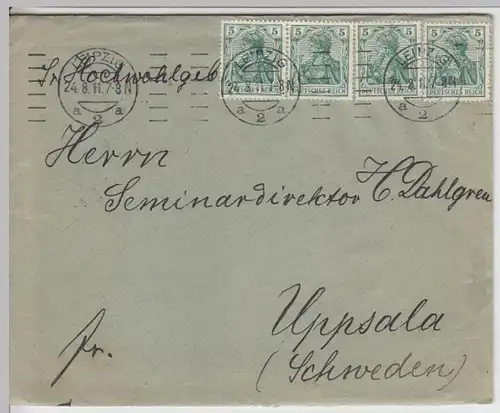 5 5 5 5 5 5 5 5
DEUTSCHES REICH DEUTSCHES REICH DEUTSCHES REICH DEUTSCHES REICH
LEIPZIG LEIPZIG LEIPZIG
24.8.11.7-8N 24.8.11.7-8N 24.8.11.7-8N
a 2 a a 2 a a 2 a
Sr. Hochwohlgeb
Herrn
Seminardirektor H. Dahlgren
Uppsala
fr. (Schweden)